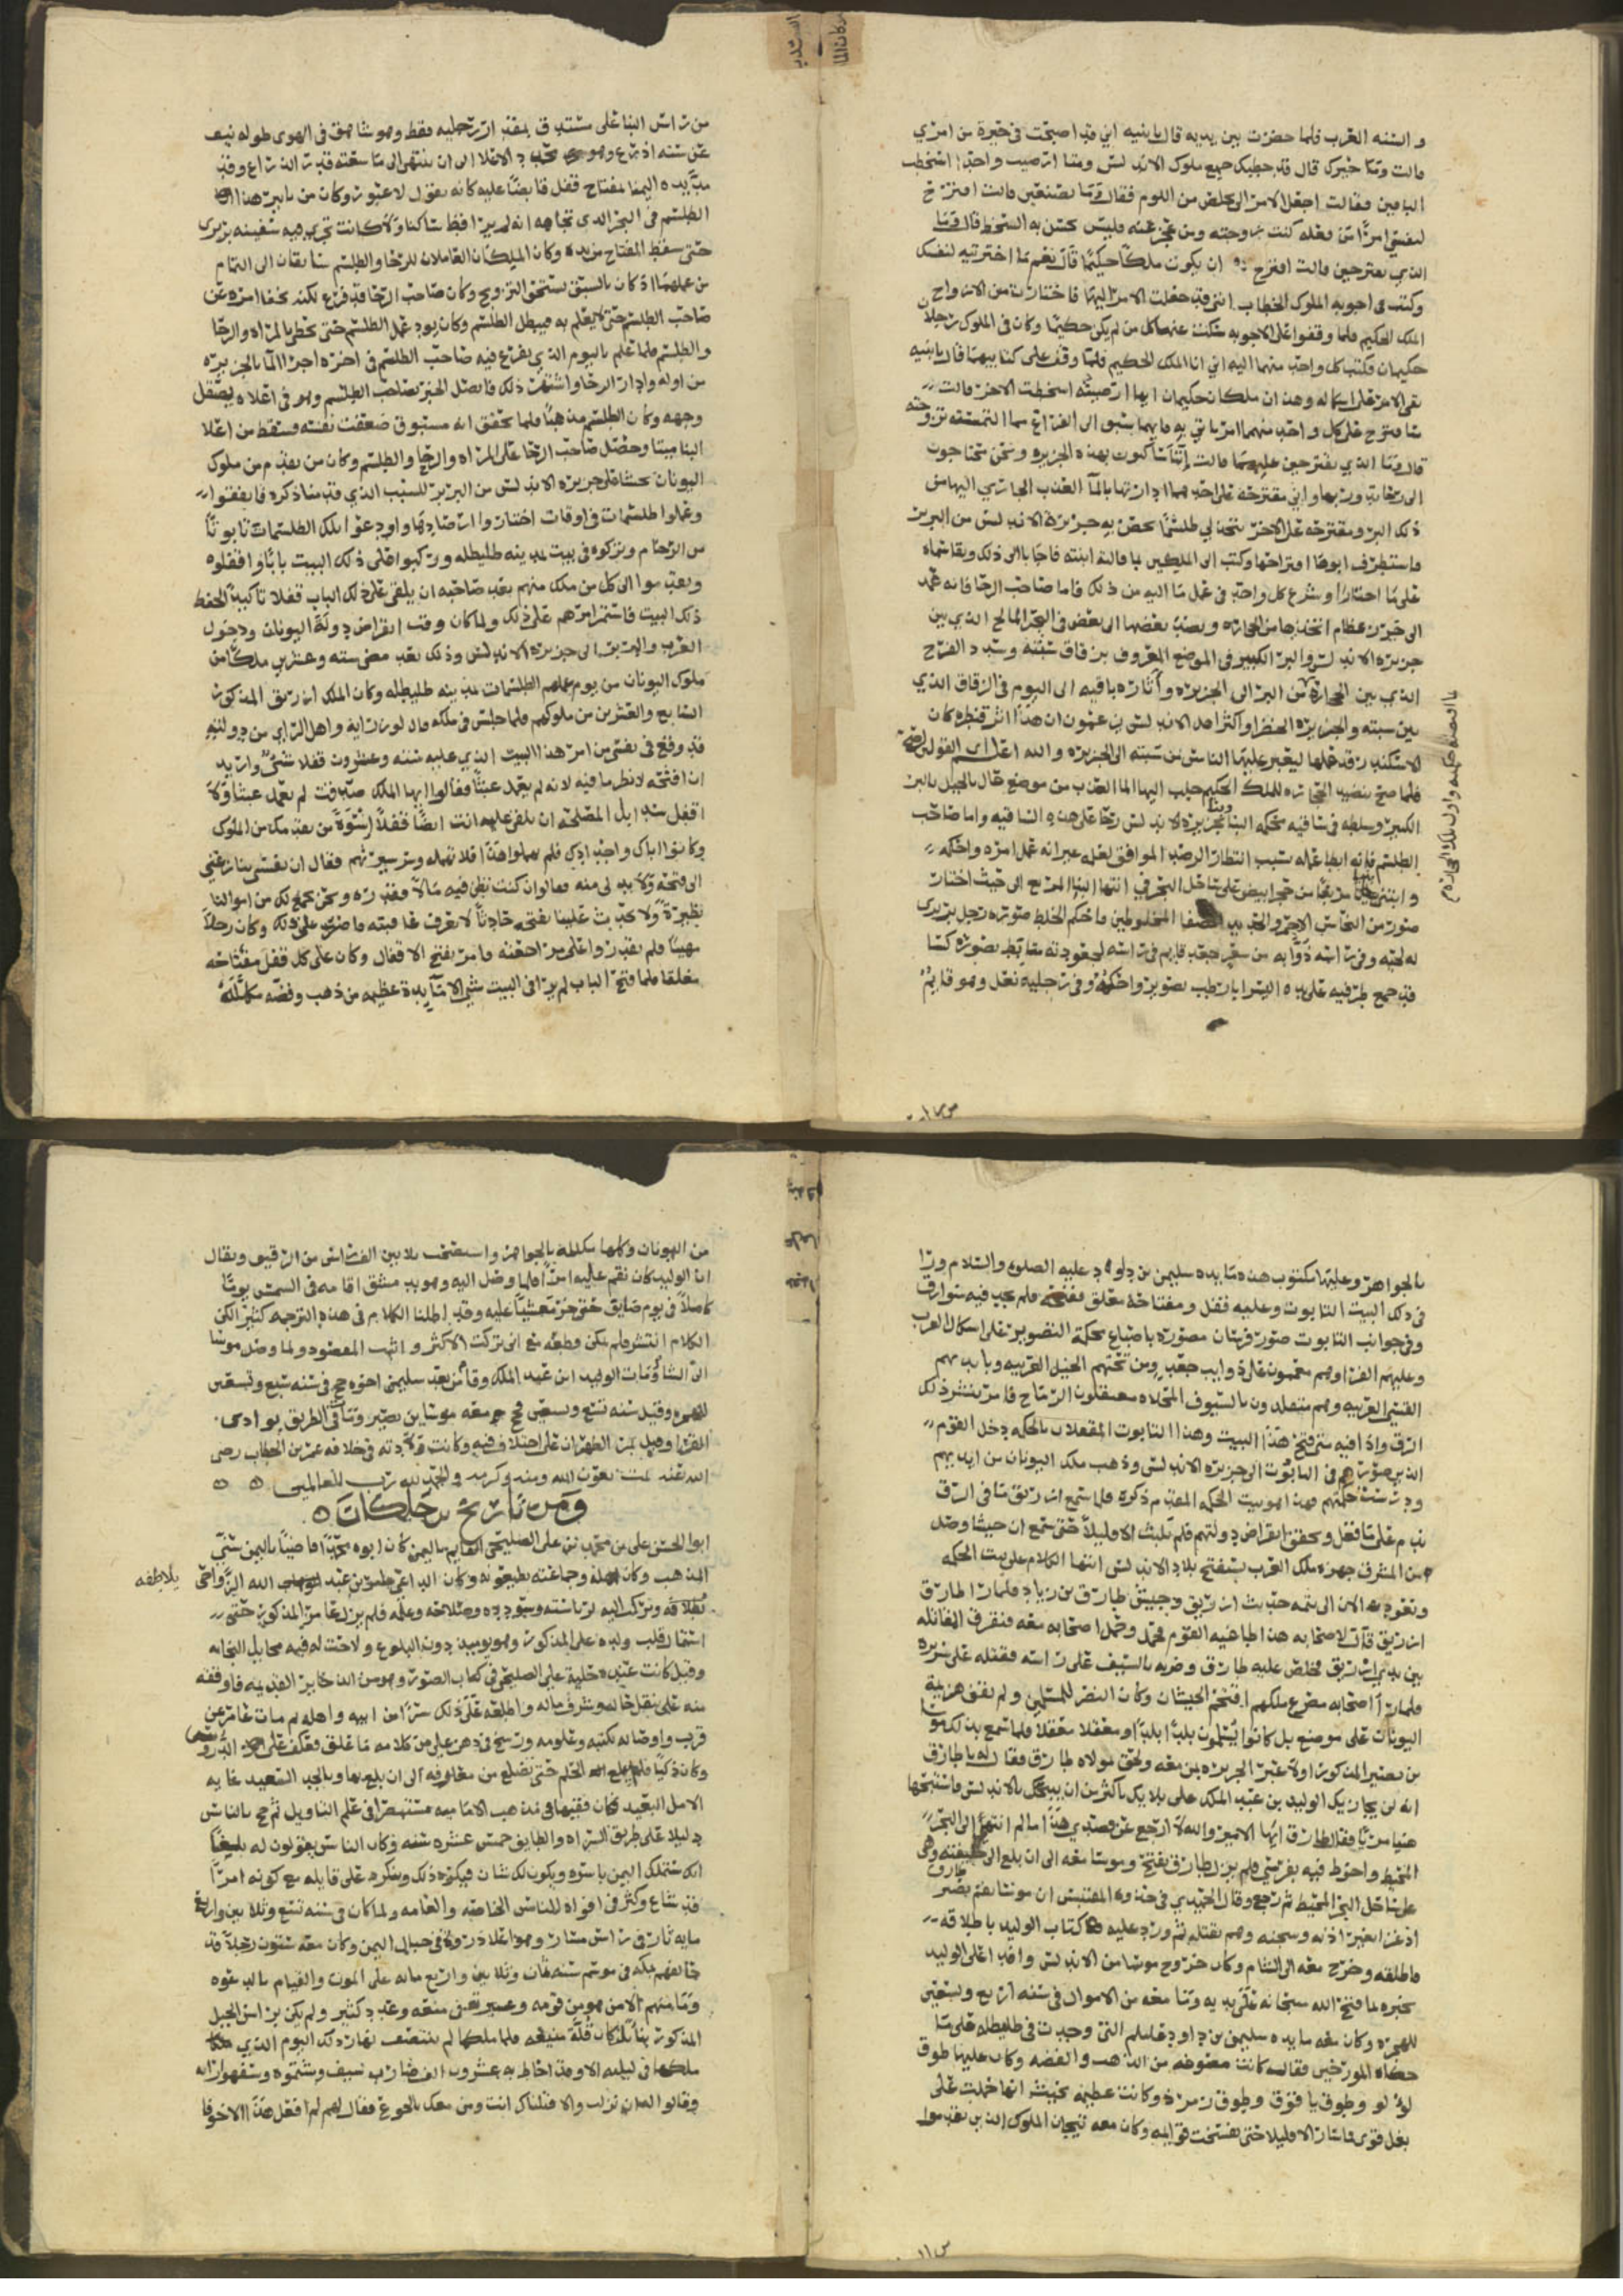 والسنه العرب فلما حضرت بين يديه قال يا بنيه اني قد اصبحت في حيرة من امري
قالت وما حيرك قال قد خطبك جميع ملوك الاندلس ومتى ارضيت واحدا اسخطت
الباقين فقالت اجعل الامر الي تخلص من اللوم فقال وما تصنعين قالت اقترح
لنفسي امرا من فعله كنت زوجته ومن عجز عنه فليس يحسن به السخط قال وما
الذي تقترحين قالت اقترح ان يكون ملكا حكيما قال نعم ما اخترتيه لنفسك
وكتب في اجوبه الملوك الخطاب انني قد جعلت الامر اليها فاختارت من الازواج
الملك الحكيم فلما وقفوا على الاجوبه سكت عنها كل من لم يكن حكيما وكان في الملوك رجلان
حكيمان فكتب كل واحد منهما اليه اني انا الملك الحكيم فلما وقف على كتابيهما قال يا بنيه
بقي الامر على اشكاله وهذان ملكان حكيمان ايهما ارضيته اسخطت الاخر قالت
ساقترح على كل واحد منهما امرا ياتي به فايهما سبق الى الفراغ مما التمسته تزوجته
قال وما الذي تقترحين عليهما قالت اننا ساكنون بهذه الجزيره ونحن محتاجون
الى رحا تدور بها واني مقترحه على احدهما ادارتها بالما العذب الجاري اليها من
ذلك البر ومقترحه على الاخر يتخذ لي طلسما يحصن به جزيرة الاندلس من البربر
فاستظرف ابوها اقتراحها وكتب الى الملكين بما قالته ابنته فاجابا الى ذلك وتقاسماه
على ما اختارا وشرع كل واحد في عمل ما اليه من ذلك فاما صاحب الرحا فانه عمد
الى خرز عظام اتخذها من الحجاره ونضد بعضها الى بعض في البحر المالح الذي بين
جزيره الاندلس والبر الكبير في الموضع المعروف بزقاق سبته وسدد الفرج
الذي بين الحجاره من البر الى الجزيره وآثاره باقيه الى اليوم في الزقاق الذي
بين سبته والجزيره الخضرا واكثر اهل الاندلس يزعمون ان هذا اثر قنطره كان
الاسكندر قد عملها ليعبر عليها الناس من سبته الى الجزيره والله اعلم اى القولين اصح
فلما صح تنضيد الحجاره للملك الحكيم جلب اليها الما العذب من موضع عال بالجبل بالبر
الكبير وسلطه في ساقيه محكمه البنا وبنى بجزيره الاندلس رحا على هذه الساقيه واما صاحب
الطلسم فانه ابطا عمله بسبب انتظار الرصد الموافق لعمله غير انه عمل امره واحكمه
وابتنى بنيانا مربعا من حجر ابيض على ساحل البحر في
صور من النحاس الاحمر والحديد المصفا المخلوطين فاحكم الخلط صوره رجل بربري
له لحيه وفي راسه ذوابه من شعر جعد قايم في راسه لجعودته متابط بصوره كسا
قد جمع طرفيه على يده اليسرا بارطب تصوير واحكمه وفي رجليه نعل وهو قايم
من راس البنا على مستدق بمقدار رجليه فقط وهو شاهق في الهوى طوله نيف
عن سته اذرع وهو محدد الاعلا الى ان ينتهي الى ما سعته قدر الذراع وقد
مد يده اليمنا بمفتاح قفل قابضا عليه كانه يقول لا عبور وكان من تاثير هذا
الطلسم في البحر الذي تجاهه انه لم ير قط ساكنا ولا كانت تجري فيه سفينه بربري
حتى سقط المفتاح من يده وكان الملكان العاملان للرحا والطلسم يتسابقان الى التمام
من عملهما اذ كان بالسبق يستحق التزويج وكان صاحب الرحا قد فرغ لكنه يخفي امره عن
صاحب الطلسم حتى لا يعلم به فيبطل الطلسم وكان يود عمل الطلسم حتى يحظى بالمراه والرحا
والطلسم فلما علم باليوم الذي يفرغ فيه صاحب الطلسم في اخره اجرا الما بالجزيره
من اوله وادار الرحا واشتهر ذلك فاتصل الخبر بصاحب الطلسم وهو في اعلاه يصقل
وجهه وكان الطلسم مذهبا فلما تحقق انه مسبوق ضعفت نفسه فسقط من اعلا
البنا ميتا وحصل صاحب الرحا على المراه والرحا والطلسم وكان من تقدم من ملوك
اليونان يخشا على جزيره الاندلس من البربر للسبب الذي قدمنا ذكره فاتفقوا
وعملوا طلسمات في اوقات اختاروا ارصادها واودعوا تلك الطلسمات تابوتا
من الرخام وتركوه في بيت بمدينه طليطله وركبوا على ذلك البيت بابا واقفلوه
وتقدموا الى كل من ملك منهم بعد صاحبه ان يلقي على ذلك الباب قفلا تاكيدا لحفظ
ذلك البيت فاستمر امرهم على ذلك ولما كان وقت انقراض دولة اليونان ودخول
العرب والبربر الى جزيره الاندلس وذلك بعد مضي سته وعشرين ملكا من
ملوك اليونان من يوم عملهم الطلسمات بمدينه طليطله وكان الملك لذريق المذكور
السابع والعشرين من ملوكهم فلما جلس في ملكه قال لوزرايه واهل الراي من دولته
قد وقع في نفسي من امر هذا البيت الذي عليه سته وعشرون قفلا شي واريد
ان افتحه لانظر ما فيه لانه لم يعمل عبثا فقالوا ايها الملك صدقت لم يعمل عبثا ولا
اقفل سدا بل المصلحه ان تلقي عليه انت ايضا قفلا اسوة من تقدمك من الملوك
وكانوا اباك واجدادك فلم يهملوا هذا فلا تهمله وسر سيرتهم فقال ان نفسي تنازعني
الى فتحه ولا بد لي منه فقالوا ان كنت تظن فيه مالا فقدره ونحن نجمع لك من اموالنا
نظيره ولا تحدث علينا بفتحه حادثا لا نعرف عاقبته فاصر على ذلك وكان رجلا
مهيبا فلم يقدروا على مراجعته وامر بفتح الاقفال وكان على كل قفل مفتاحه
معلقا فلما فتح الباب لم ير في البيت شي الا مآيدة عظيمه من ذهب وفضه مكلله
بالجواهر وعليها مكتوب هذه مايده سليمن بن داود عليه الصلوه والسلام وراا
في ذلك البيت التابوت وعليه قفل ومفتاحه معلق ففتحه فلم يجد فيه سوا رق
وفي جوانب التابوت صور فرسان مصوره باصباغ محكمة التصوير على اشكال العرب
وعليهم الفرا وهم معممون على ذوايب جعد ومن تحتهم الخيل العربيه وبايديهم
القسي العربيه وهم متقلدون بالسيوف المحلاه معتقلون الرماح فامر بنشر ذلك
الرق واذا فيه متى فتح هذا البيت وهذا التابوت المقفلان بالحكمه دخل القوم
الذين صورهم في التابوت الى جزيره الاندلس وذهب ملك اليونان من ايديهم
ودرست حكمتهم فهذا هو بيت الحكمه المقدم ذكره فلما سمع لذريق ما في الرق
ندم على ما فعل وتحقق انقراض دولتهم فلم يلبث الا قليلا حتى سمع ان جيشا وصل
من المشرق جهزه ملك العرب يستفتح بلاد الاندلس انتها الكلام على بيت الحكمه
ونعود الان الى تتمه حديث لذريق وجيش طارق بن زياد فلما را طارق
لذريق قال لاصحابه هذا طاغيه القوم فحمل وحمل اصحابه معه فتفرقت المقاتله
بين يدي لذريق فخلص عليه طارق وضربه بالسيف على راسه فقتله على سريره
فلما را اصحابه مصرع ملكهم اقتحم الجيشان وكان النصر للمسلمين ولم تقف هزيمة
اليونان على موضع بل كانوا يسلمون بلدا بلدا ومعقلا معقلا فلما سمع بذلك موسى
بن نصير المذكور اولا عبر الجزيره بمن معه ولحق بمولاه طارق فقال له يا طارق
انه لن يجازيك الوليد بن عبد الملك على بلايك باكثر من ان يبيحك بالاندلس فاستبحها
هنيا مريا فقال طارق ايها الامير والله لا ارجع عن قصدي هذا ما لم انتهي الى البحر
المحيط واخوض فيه بفرسي فلم يزل طارق يفتح وموسا معه الى ان بلغ الى جليقيه وهي
على ساحل البحر المحيط ثم رجع وقال الحميدي في جذوه المقتبس ان موسا نقم على طارق
اذ غزا بغير اذنه وسجنه وهم بقتله ثم ورد عليه كتاب الوليد باطلاقه
فاطلقه وخرج معه الى الشام وكان خروج موسا من الاندلس وافدا على الوليد
يخبره بما فتح الله سبحانه على يديه وما معه من الاموال في سنه اربع وتسعين
للهجره وكان معه مايده سليمن بن داود عليه السلم التي وجدت في طليطله على ما
حكاه المورخين فقال كانت مصوغه من الذهب والفضه وكان عليها طوق
لؤلؤ وطوق ياقوت وطوق زمرذ وكانت عظيمه بحيث انها حملت على
بغل قوى فما سار الا قليلا حتى تفسخت قوايمه وكان معه تيجان الملوك الذين تقدموا
من اليونان وكلها مكلله بالجواهر واستصحب ثلاثين الف راس من الرقيق ويقال
ان الوليد كان نقم عليه امرا فلما وصل اليه وهو بدمشق اقامه في الشمس يوما
كاملا في يوم صايف حتى خر مغشيا عليه وقد اطلنا الكلام في هذه الترجمه كثيرا لكن
الكلام انتشر فلم يمكن قطعه مع اني تركت الاكثر واتيت المقصود ولما وصل موسا
الى الشام ومات الوليد ابن عبد الملك وقام من بعده سليمن اخوه حج في سنه سبع وتسعين
للهجره وقيل سنه تسع وتسعين فحج معه موسا بن نصير ومات في الطريق بوادي
القرا وقيل بمر الظهران على اختلاف فيه وكانت ولادته في خلافه عمر بن الخطاب رضي
الله عنه تمت بعون الله ومنه وكرمه والحمد لله رب العالمين
ومن تاريخ بن خلكان
ابو الحسن علي بن محمد بن علي الصليحي القايم باليمن كان ابوه محمد قاضيا باليمن سني
المذهب وكان اهله وجماعته يطيعونه وكان الداعي عامر بن عبد الله الزواحي
يلاطفه
يلاطفه ويركب اليه لرياسته وسودده وصلاحه وعلمه فلم يزل عامر المذكور حتى
استمال قلب ولده علي المذكور وهو يوميذ دون البلوغ ولاحت له فيه مخايل النجابه
وقيل كانت عنده حلية علي الصليحي في كتاب الصور وهو من الذخاير القديمه فاوقفه
منه على تنقل حاله وشرف ماله واطلعه على ذلك سرا من ابيه واهله ثم مات عامر عن
قرب واوصا له بكتبه وعلومه ورسخ في ذهن علي من كلامه ما علق فعكف على الدرس
وكان ذكيا فلم يبلغ الحلم حتى تضلع من معارفه الى ان بلغ بها وبالجد السعيد غايه
الامل البعيد فكان فقيها في مذهب الاماميه مستبصرا في علم التاويل ثم حج بالناس
دليلا على طريق السراه والطايف خمس عشره سنه وكان الناس يقولون له بلغنا
انك ستملك اليمن باسره ويكون لك شان فيكره ذلك وينكره على قايله مع كونه امرا
قد شاع وكثر في افواه الناس الخاصه والعامه ولما كان في سنه تسع وثلاثين واربع
مايه ثار في راس مسار وهو اعلا ذروه في جبال اليمن وكان معه ستون رجلا قد
حالفهم بمكه في موسم سنه ثمان وثلاثين واربع مايه على الموت والقيام بالدعوه
وما منهم الا من هو من قومه وعشيرته في منعه وعدد كثير ولم يكن براس الجبل
المذكور بنا بل كان قلة منيعه فلما ملكها لم ينتصف نهار ذلك اليوم الذي
ملكها في ليلته الا وقد احاط به عشرون الف ضارب سيف وشتموه وسفهوا رايه
وقالوا له ان نزلت والا قتلناك انت ومن معك بالجوع فقال لهم لم افعل هذا الا خوفا